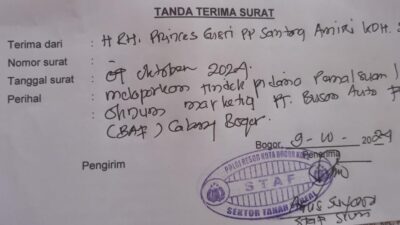 TANDA TERIMA SURAT
Terima dari : H RH. Princes Gusri PP Santos Amiri KDH. S
Nomor surat : -
Tanggal surat : 09 Oktober 2024.
Perihal : melaporkan tindak pidana Pemalsuan
Oknum marketing PT. Buson Auto F
(BAF) Cabang Bogor.
Bogor, 9-10-2024
Pengirim
Penerima
POLRESOR KOTA BOGOR KOTA
STAF
SEKTOR TANAH SAREAL